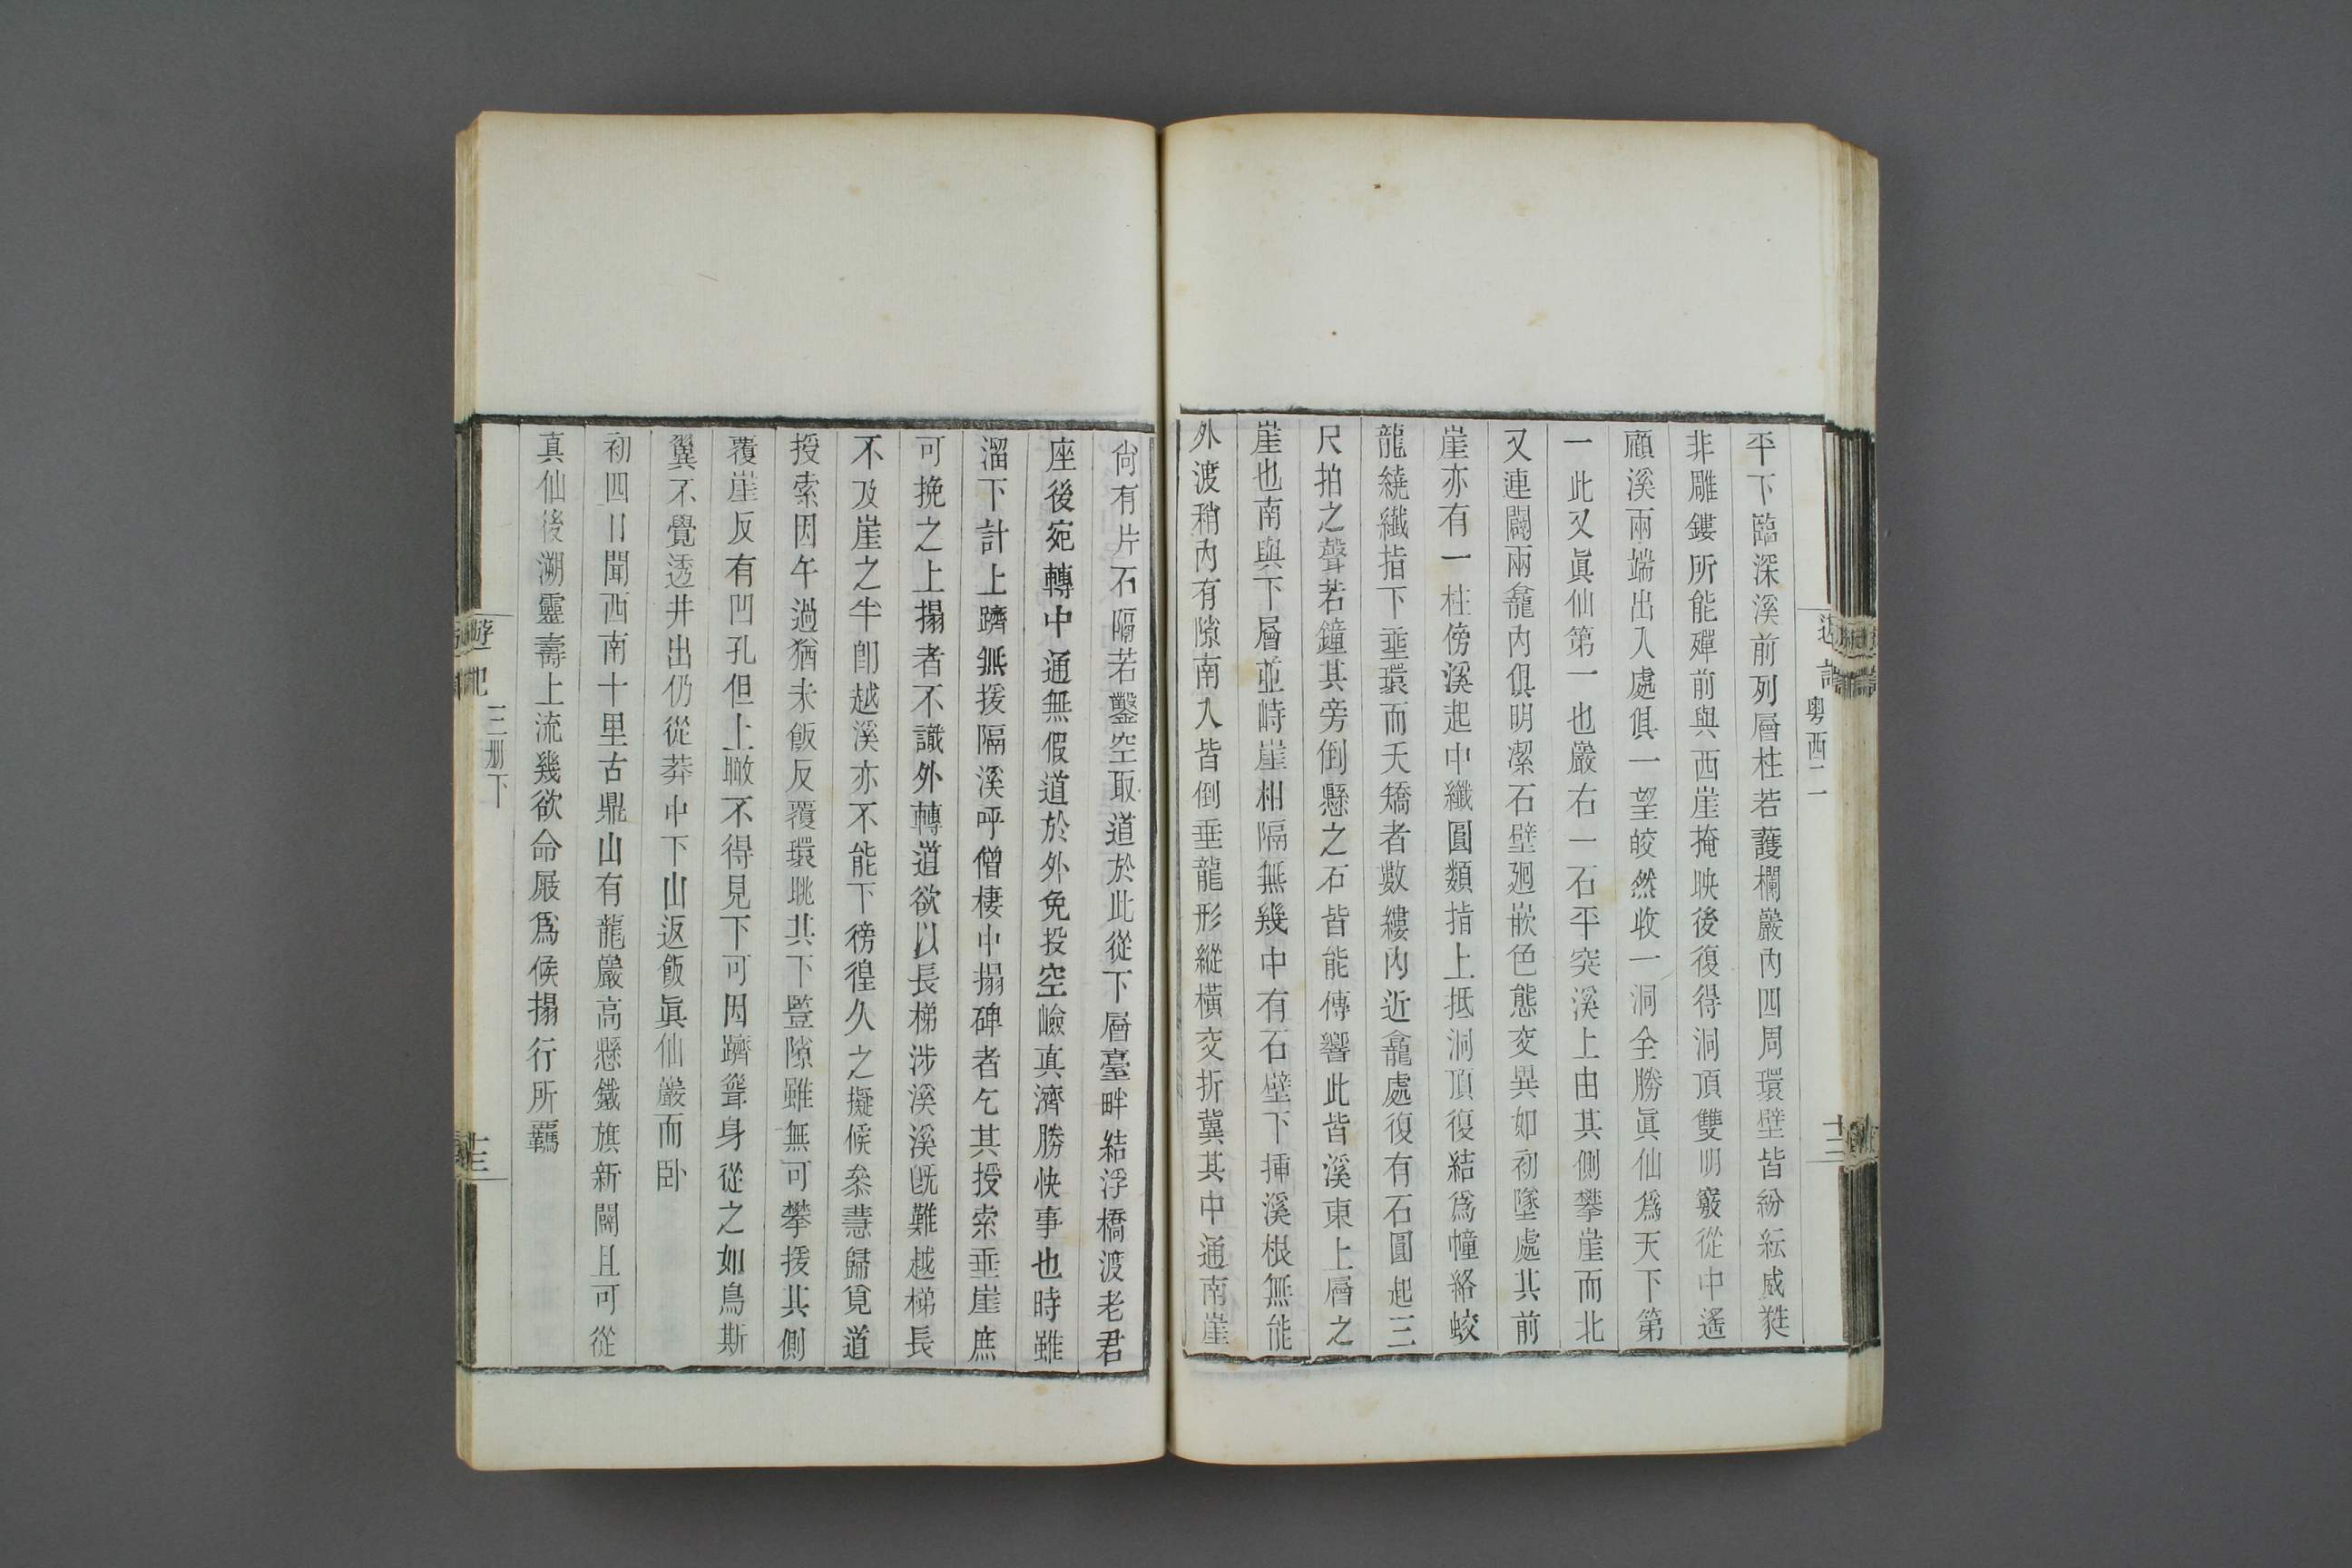 粤西二
平下臨深溪前列層柱若護欄巖內四周環壁皆紛紜葳蕤
非雕鏤所能殫前與西崖掩映後復得洞頂雙明竅從中遙
顧溪兩端出入處俱一望皎然收一洞全勝眞仙爲天下第
一此又眞仙第一也巖右一石平突溪上由其側攀崖而北
又連闢兩龕內俱明潔石壁廻嵌色態变異如初墜處其前
崖亦有一柱傍溪起中纖圓類指上抵洞頂復結爲幢絡蛟
龍繞纖指下垂環而夭矯者數縷內近龕處復有石圓起三
尺拍之聲若鐘其旁倒懸之石皆能傳響此皆溪東上層之
崖也南與下層並峙崖相隔無幾中有石壁下揷溪根無能
外渡稍內有隙南入皆倒垂龍形縱橫交折冀其中通南崖
尙有片石隔若鑿空取道於此從下層臺畔結浮橋渡老君
座後宛轉中通無假道於外免投空嶮真濟勝快事也時雖
溜下計上躋無援隔溪呼僧棲中搨碑者乞其授索垂崖庶
可挽之上搨者不識外轉道欲以長梯涉溪溪旣難越梯長
不及崖之半卽越溪亦不能下徬徨久之擬候叅慧歸覓道
授索因午過猶未飯反覆環眺其下竪隙雖無可攀援其側
覆崖反有凹孔但上瞰不得見下可因躋聳身從之如鳥斯
翼不覺透井出仍從莽中下山返飯眞仙巖而卧
初四日聞西南十里古鼎山有龍巖高懸鐵旗新闢且可從
真仙後溯靈壽上流幾欲命屐爲候搨行所羈
遊記
三册下
十三